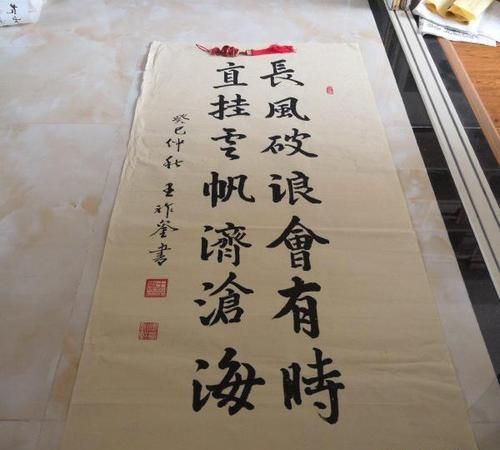 長風破浪會有時
直挂雲帆濟滄海
癸巳仲秋 王祚奎書